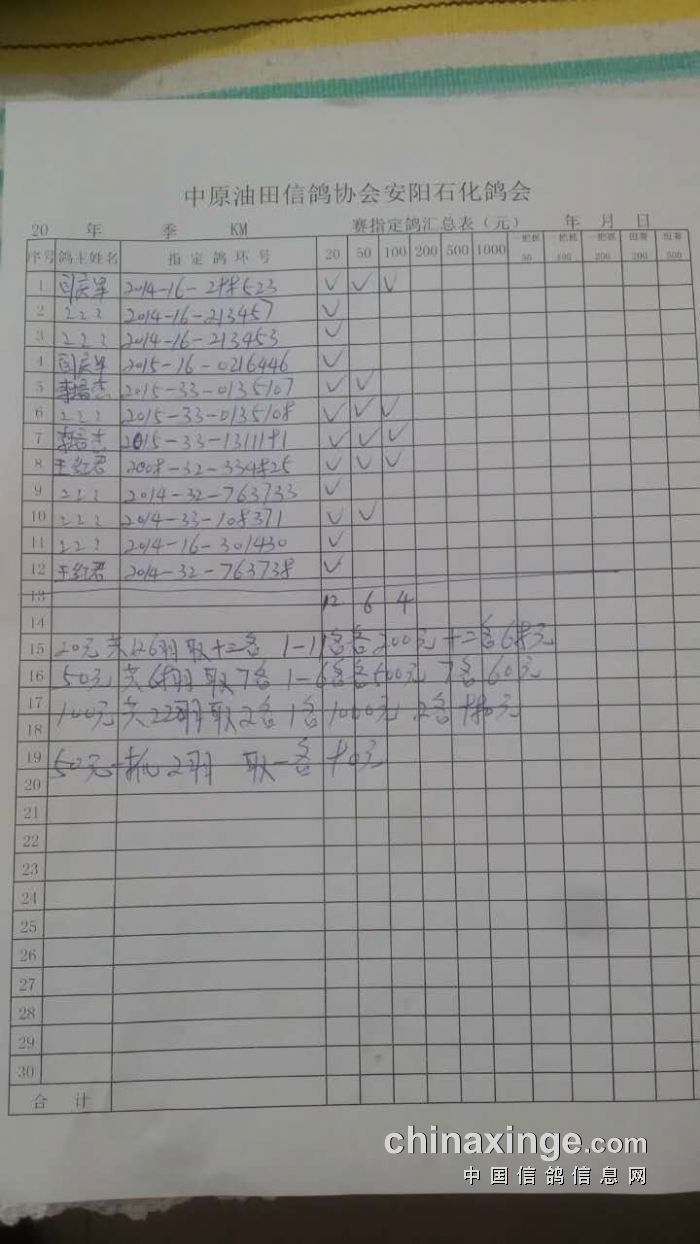 中原油田信鸽协会安阳石化鸽会
20 年 季 KM 赛指定鸽汇总表（元） 年 月 日
序号 鸽主姓名 指定鸽环号 20 50 100 200 500 1000 一把抓50 一把抓100 一把抓200 组赛200 组赛500
1 闫庆军 2014-16- ✓ ✓ ✓
2 2 2 2 2014-16-213457 ✓
3 2 2 2 2014-16-213453 ✓
4 闫庆军 2015-16-0216446 ✓
5 李岩杰 2015-33-0135107 ✓ ✓
6 2 2 2 2015-33-0135108 ✓ ✓ ✓
7 李岩杰 2015-33-1311181 ✓ ✓ ✓
8 王红君 2008-32-334825 ✓ ✓ ✓
9 2 2 2 2014-32-763733 ✓
10 2 2 2 2014-33-108371 ✓ ✓
11 2 2 2 2014-16-301430 ✓
12 王红君 2014-32-763738 ✓
13 12 6 4
14
15 20元共126羽取十二名 1-11名各200元 十二名68元
16 50元共68羽取7名 1-6名各500元 7名60元
17 100元共22羽取2名 1名1000元 2名
18
19 50元一抓2羽 取一名80元
20
21
22
23
24
25
26
27
28
29
30
合计
chinaxinge.com
中国信鸽信息网